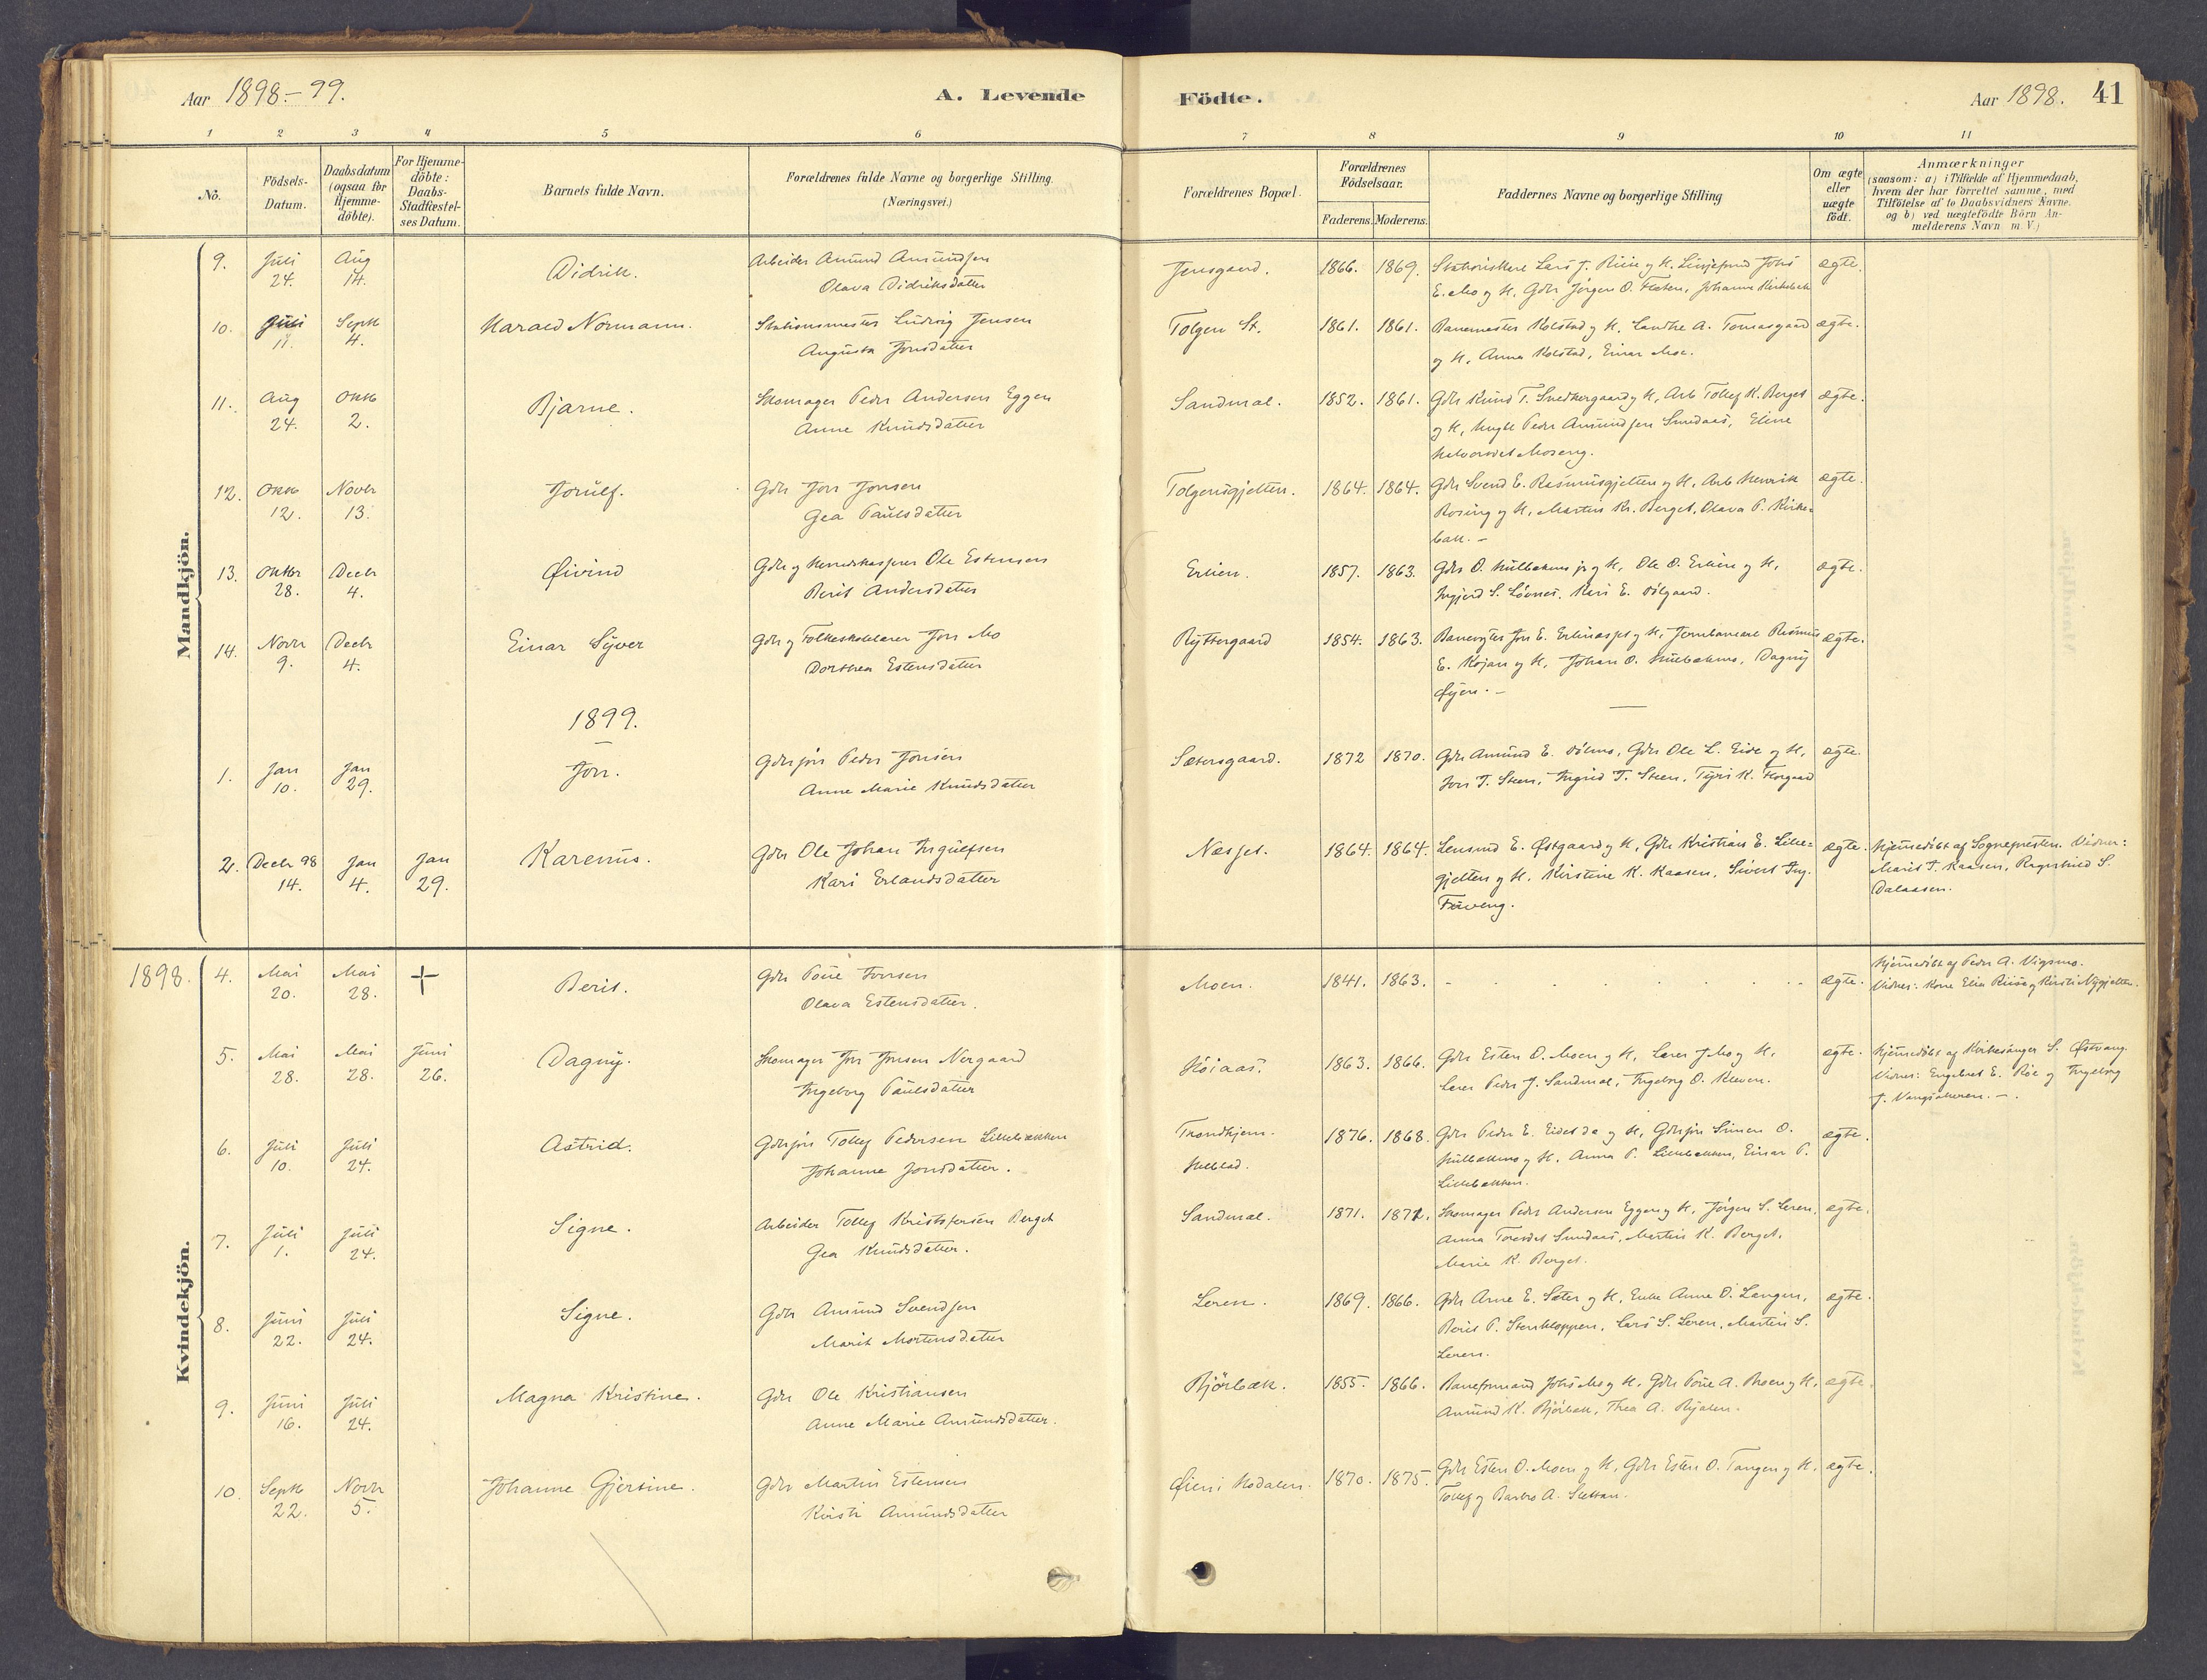 Aar 1898-99.
A. Levende
Födte.
Aar 1898. 41
1 2 3 4 5 6 7 8 9 10 11
No.
Födsels-Datum.
Daabsdatum (ogsaa for Hjemmedöbte).
For Hjemmedöbte: Daabs-Stadfæstelses Datum.
Barnets fulde Navn.
Forældrenes fulde Navne og borgerlige Stilling. (Næringsvei.)
Forældrenes Bopæl.
Forældrenes Födselsaar.
Faderens. Moderens.
Faddernes Navne og borgerlige Stilling
Om ægte eller uægte födt.
Anmærkninger
(saasom: a) i Tilfælde af Hjemmedaab,
hvem der har forrettet samme, med
Tilföielse af to Daabsvidners Navne.
og b) ved uægtefödte Börn An-
melderens Navn m.V.)
Mandkjön.
9. Juli 24. Aug 14. Didrik. Arbeider Amund Amundsen
Olava Didriksdatter
Jensgaard. 1866. 1869. ægte.
10. Juli 11. Septb 4. Harald Normann. Stationsmester Ludvig Jensen
Augusta Jonsdatter
Tolgen St. 1861. 1861. Banemester Kolstad og H. Landhr A. Tomasgaard ægte.
og H. Anna Kolstad, Einar Moe.
11. Aug 24. Oktb 2. Bjarne. Skomager Peder Andersen Eggen
Anne Knudsdatter
Sandmal. 1852. 1861. Gdbr Knud T. Snedkergaard og H, Arb Tollef K. Berget ægte.
og H, Ungkl Peder Amundsen Sundaas, Eline
Moseng.
12. Oktb 12. Novbr 13. Jorulf. Gdbr Jon Jonsen
Gea Paulsdatter
Tolgensgjelten. 1864. 1864. Gdbr Svend E. Rasmusgjelten og H, Arb Henrik ægte.
Rosing og H, Martin Kr. Berget, Olava P. Kirke-
bak. -
13. Oktbr 28. Decbr 4. Øivind Gdbr og Herredskasserer Ole Estensen
Berit Andersdatter
Erlien. 1857. 1863. Gdbr O. Kulbakmo jr og H, Ole O. Erlien og H, ægte.
Ingjerd S. Løvnes. Kari E. Dølgaard.
14. Novbr 9. Decbr 4. Einar Syver Gdbr og Folkeskolelærer Jon Mo
Dorthea Estensdatter
Ryttergaard 1854. 1863. ægte.
E. Kojan og H, Johan O. Kulbakmo, Dagny
Øyen. -
1899.
1. Jan 10. Jan 29. Jon. Gdbrsøn Peder Jonsen
Anne Marie Knudsdatter
Sætersgaard. 1872 1870. Gdbr Amund E. Dølmo, Gdbr Ole L. Eide og H, ægte.
Jon T. Steen, Ingrid T. Steen, Tyri K. Horgaard
2. Decbr 98 14. Jan 4. Jan 29. Karenus. Gdbr Ole Johan Ingulfsen
Kari Erlandsdatter
Næsset. 1864. 1864. Lensmd E. Østgaard og H, Gdbr Kristian E. Lille- ægte. Hjemmedøbt af Sognepresten. Vidner:
gjelten og H. Kirstine K. Kaasen, Sivert Ing. Marit T. Kaasen, Ragnhild S.
Dalaasen.
1898.
Kvindekjön.
4. Mai 20. Mai 28. + Berit. Gdbr Poul Iversen
Olava Estensdatter.
Moen. 1841. 1863. ægte. Hjemmedøbt af Peder A. Vigsmo.
Vidner: Kone Elia Riise og Kirsti Nygjelten.
5. Mai 28. Mai 28. Juni 26. Dagny. Skomager Jon Jonsen Nergaard
Ingeborg Paulsdatter
Høiaas. 1863. 1866. Gdbr Esten O. Moen og H, Lærer J. Mo og H, ægte. Hjemmedøbt af Kirkesanger S. Østvang.
Lærer Peder J. Sandmal, Ingeborg O. Kleven. Vidner: Engebret E. Røe og Ingeborg
J. Vangsakeren. -.
6. Juli 10. Juli 24. Astrid. Gdbrsøn Tollef Pedersen Lillebækken
Johanne Jonsdatter.
Trondhjem. 1876. 1868. Gdbr Peder E. Eidet da og H, Gdbrsøn Simen O. ægte.
Kulbakmo og H. Anna P. Lillebækken, Einar P.
Lillebækken.
7. Juli 1. Juli 24. Signe. Arbeider Tollef Kristofersen Berget
Gea Knudsdatter.
Sandmal. 1871. 1872. Skomager Peder Andersen Eggen og H, Jørgen S. Leren, ægte.
Anna Sundaas, Martin K. Berget,
Marie K. Berget.
8. Juni 22. Juli 24. Signe. Gdbr Amund Svendsen
Marit Mortensdatter
Leren. 1869. 1866. Gdbr Arne E. Sæter og H, Enke Anne O. Langen, ægte.
Berit P. Stenkloppen, Lars S. Leren, Martin S.
Leren.
9. Juni 16. Juli 24. Magna Kristine. Gdbr Ole Kristiansen
Anne Marie Amundsdatter.
Bjørbæk. 1855. 1866. Baneformand Johs Mo og H, Gdbr Poul A. Moen og H, ægte.
Amund K. Bjørbæk, Thea A.
10. Septb 22. Novbr 5. Johanne Gjertine. Gdbr Martin Estensen
Kirsti Amundsdatter
Øien i Hodalen. 1870. 1875. Gdbr Esten O. Moen og H, Gdbr Esten O. Tangen og H, ægte.
Tollef og Barbro A. Slettan.